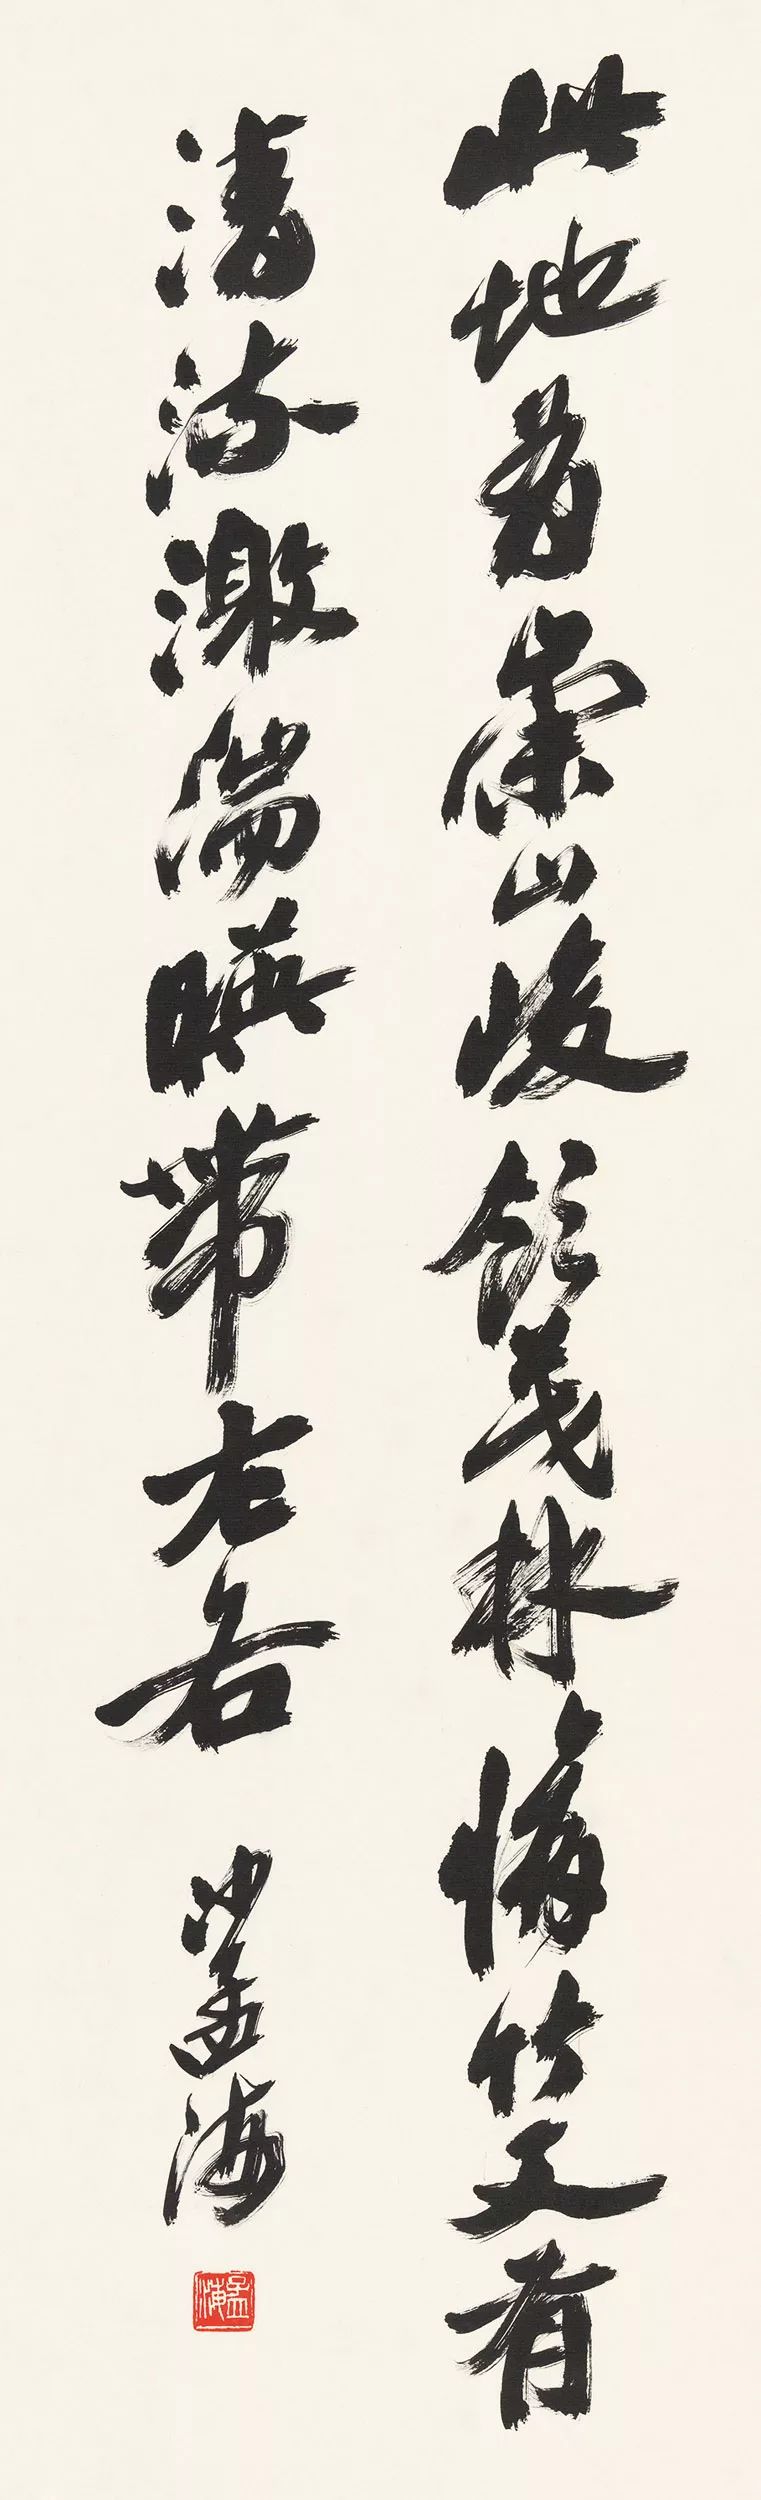 此地有崇山峻领茂林修竹又有
清流激湍暎带左右
沙孟海
孟海